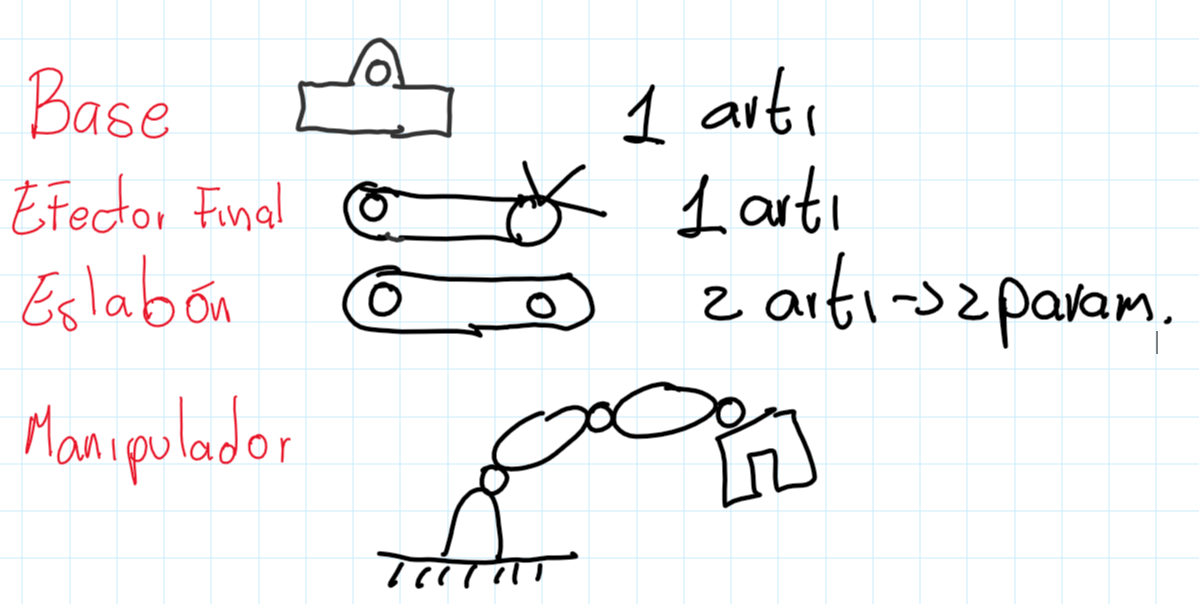 Base 1 arti
Efector Final 1 arti
Eslabón 2 arti -> 2 param.
Manipulador